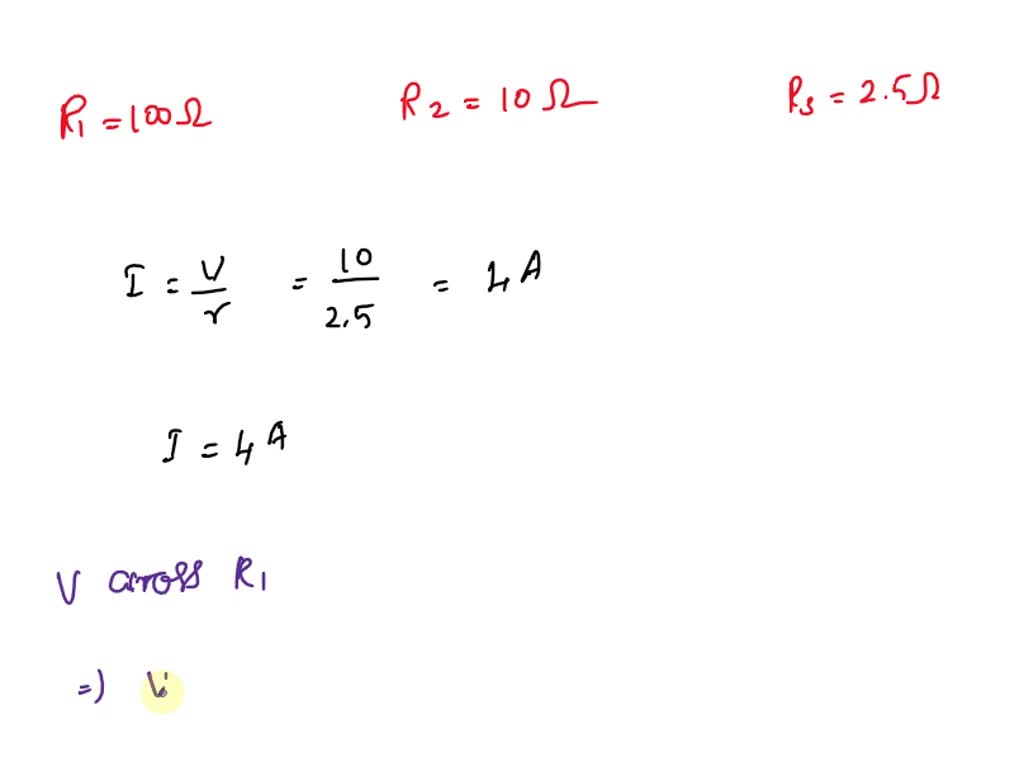 R1 = 100Ω R2 = 10Ω R3 = 2.5Ω
I = V/r = 10/2.5 = 4A
I = 4A
V across R1
=) V